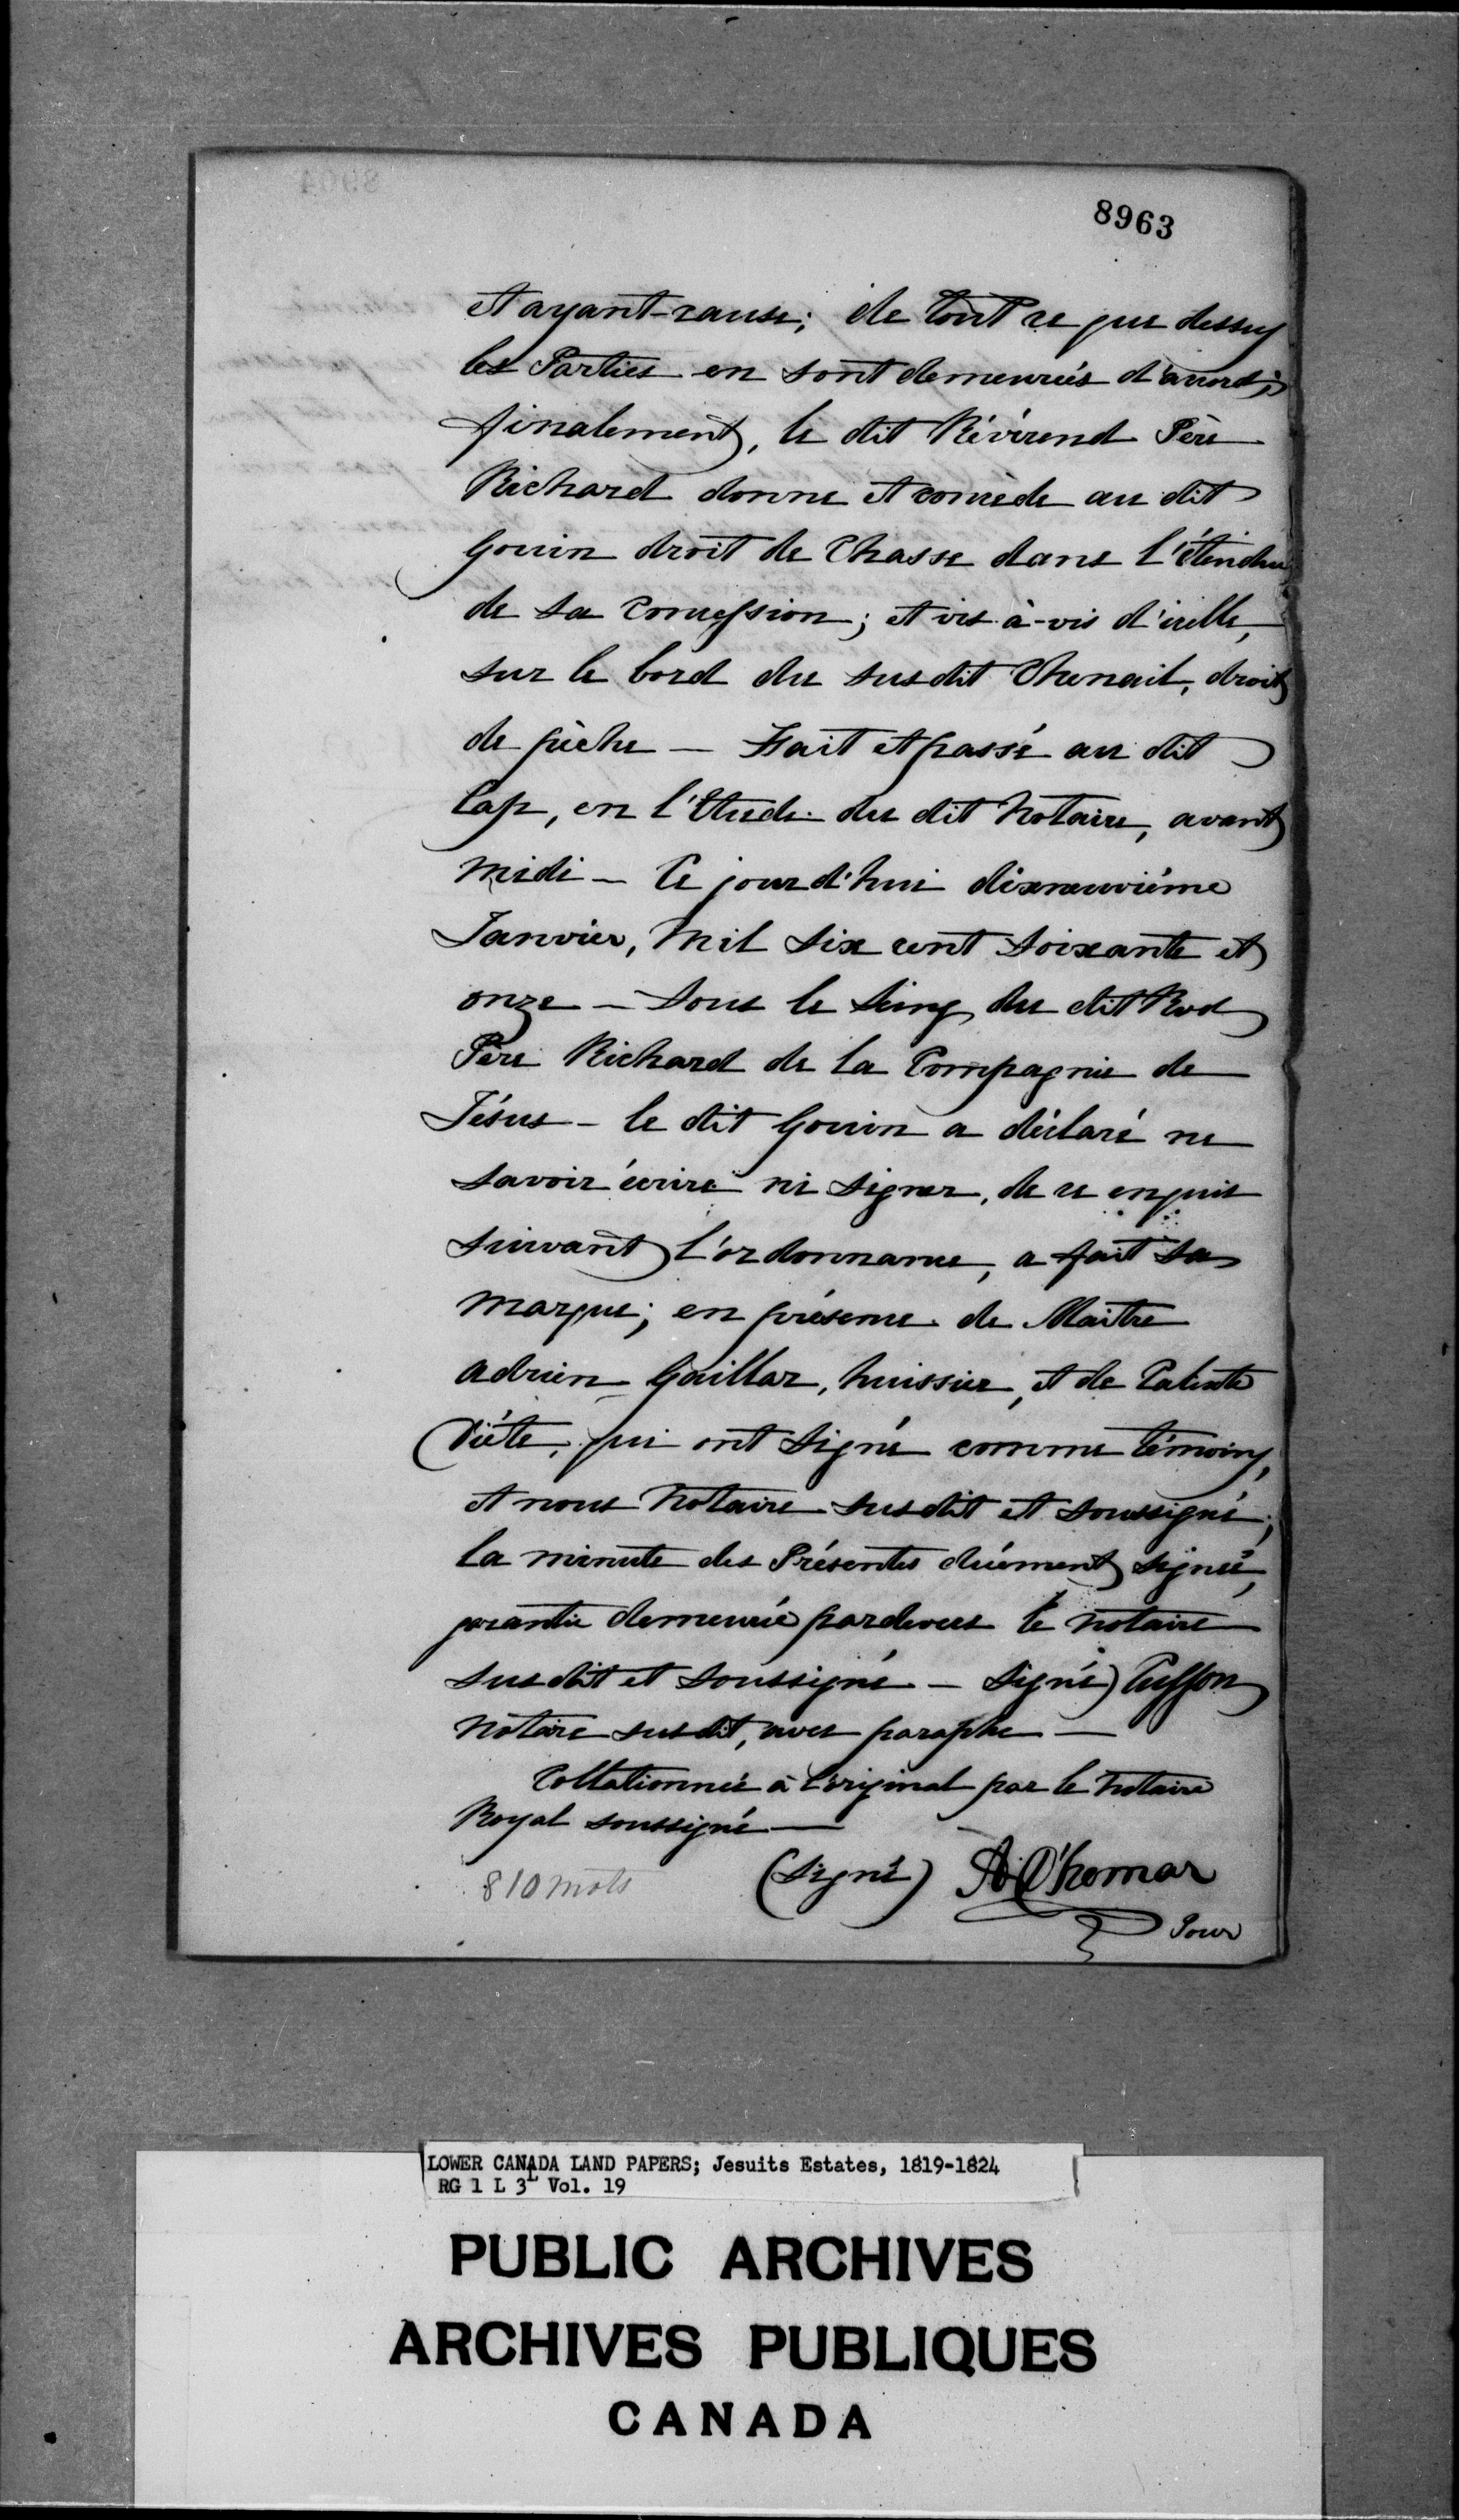 8963
et ayant-cause; de tout ce que dessus
les Parties en sont demeurées d'accord;
finalement, le dit Révérend Père
Richard donne et concède au dit
Gouin droit de Chasse dans l'étendue
de sa Concession; et vis-à-vis d'icelle,
sur le bord du susdit Chenail, droit
de pêche — Fait et passé au dit
Cap, en l'Etude du dit Notaire, avant
midi — Ce jourd'hui dixneuvième
Janvier, Mil six cent soixante et
onze — Sous le Seing du dit Rvd
Père Richard de la Compagnie de
Jésus — le dit Gouin a déclaré ne
savoir écrire ni signer, de ce enquis
suivant l'ordonnance, a fait sa
marque; en présence de Maître
Adrien Gaillar, huissier, et de
Diéte, qui ont signé comme témoins,
et nous Notaire susdit et soussigné;
la minute des Présentes duément signée,
garantie demeurée pardevers le notaire
susdit et soussigné — Signé) Cusson
Notaire susdit, avec paraphe —
Collationnée à l'original par le Notaire
Royal soussigné —
810 mots
(Signé) A. D'homar
Pour
LOWER CANADA LAND PAPERS; Jesuits Estates, 1819-1824
RG 1 L 3L Vol. 19
PUBLIC ARCHIVES
ARCHIVES PUBLIQUES
CANADA